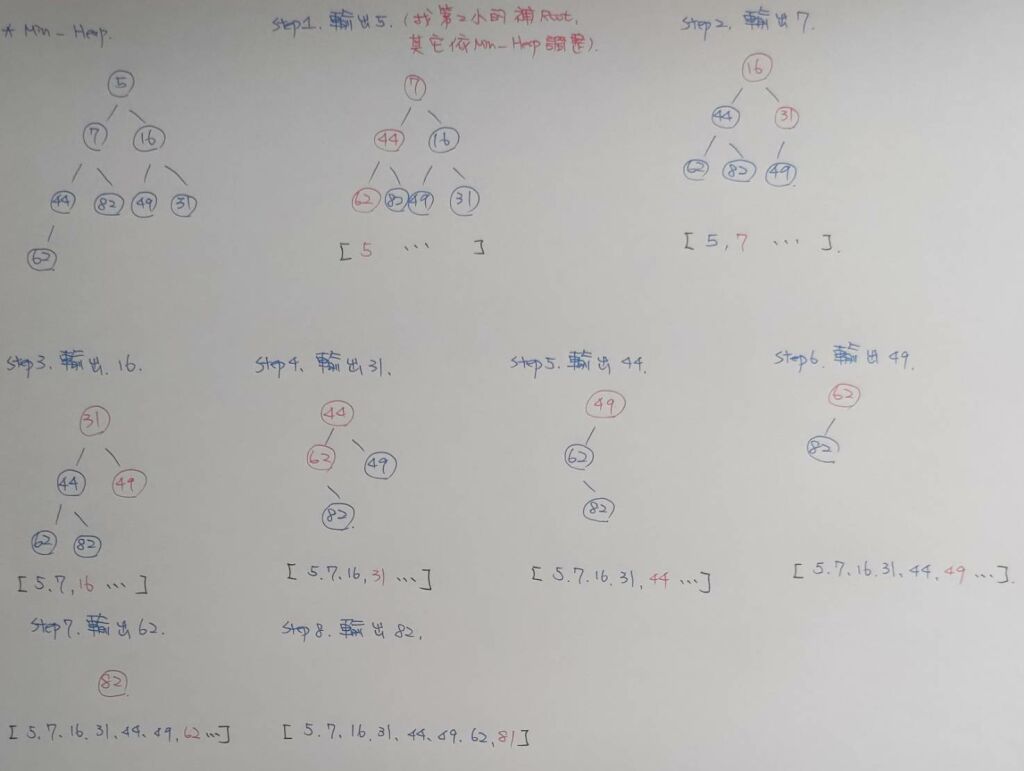 * Min-Heap.
5
7 16
44 82 49 31
62
Step1. 輸出5. (找第2小的補Root,
其它依Min-Heap調整).
7
44 16
62 82 49 31
[ 5 ... ]
Step2. 輸出7.
16
44 31
62 82 49
[ 5, 7 ... ].
Step3. 輸出. 16.
31
44 49
62 82
[ 5.7, 16 ... ]
Step4. 輸出31.
44
62 49
82
[ 5.7.16, 31 ... ]
Step5. 輸出44.
49
62
82
[ 5.7.16.31, 44 ... ]
Step6. 輸出49.
62
82
[ 5.7.16.31.44.49 ... ].
Step7. 輸出62.
82
[ 5.7.16.31.44.49.62 ... ]
Step8. 輸出82.
[ 5.7.16.31.44.49.62,81 ]